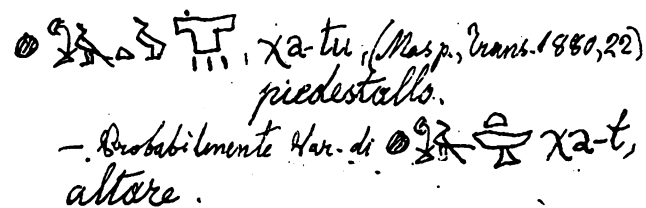 , χa-tu, (Masp., Trans. 1880, 22)
piedestallo.
— Probabilmente Var. di χa-t,
altare.